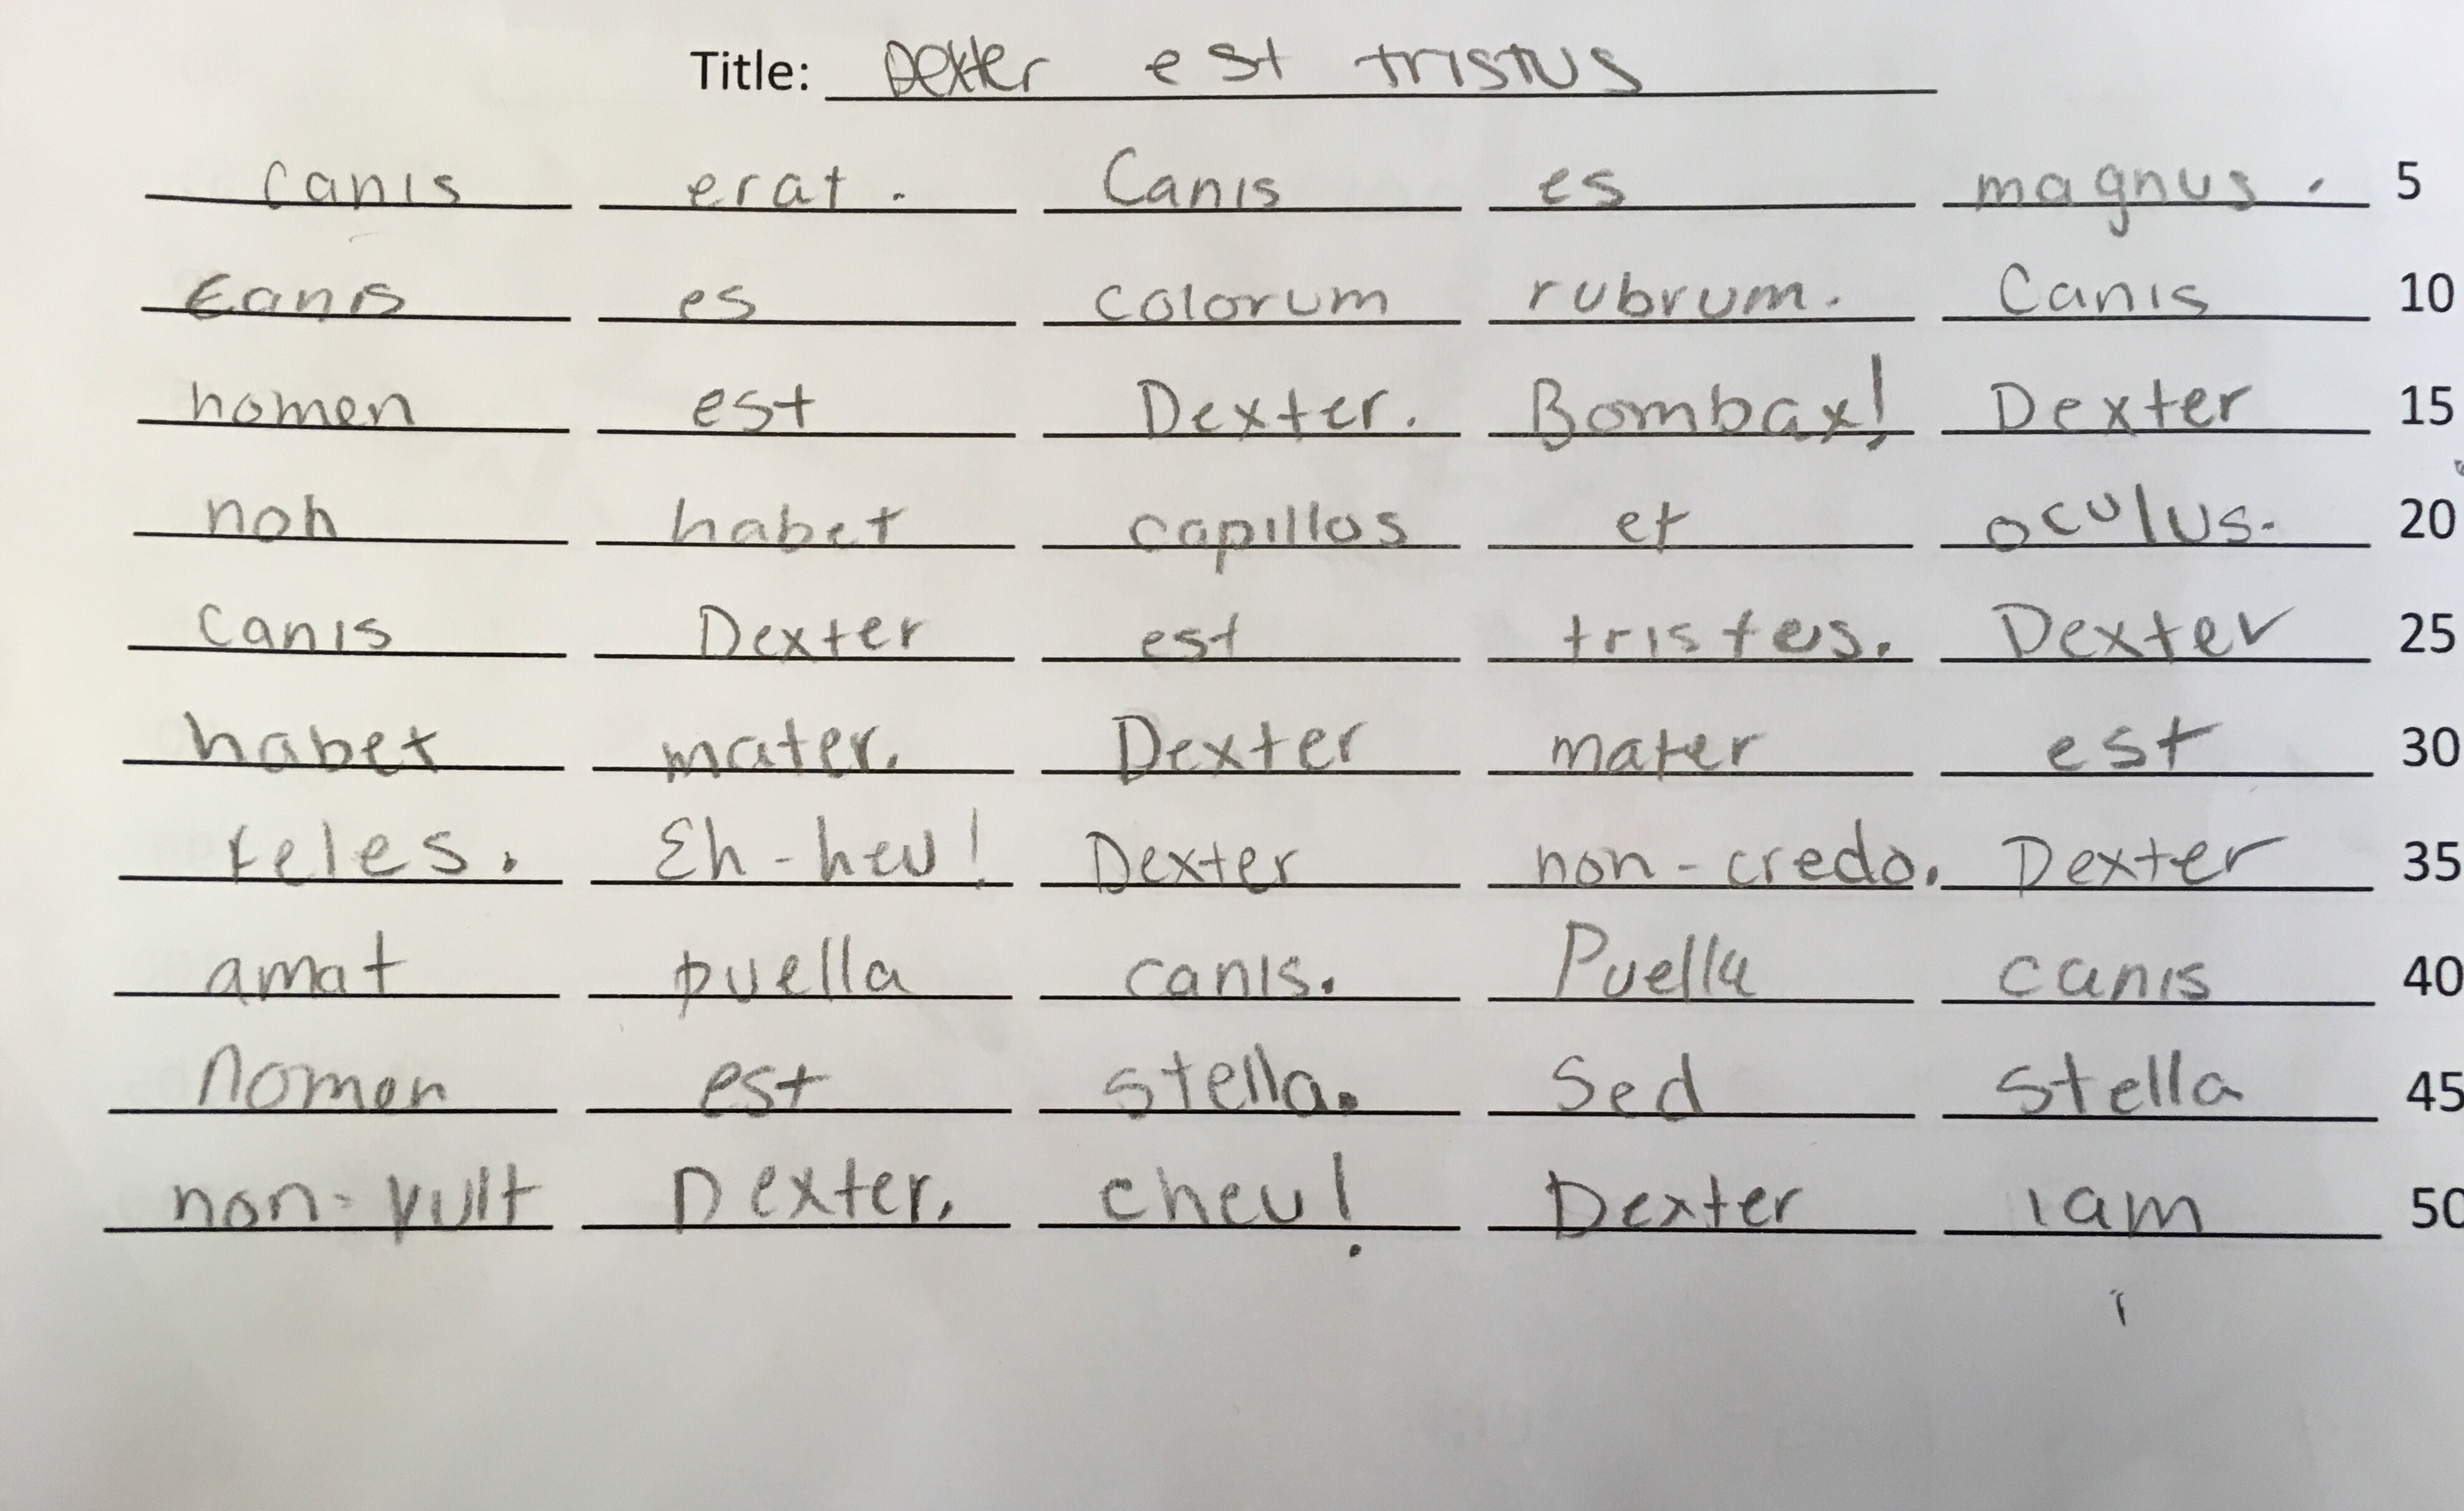 Title: Dexter est tristus
canis erat. Canis es magnus. 5
Canis es colorum rubrum. Canis 10
nomen est Dexter. Bombax! Dexter 15
non habet capillos et oculus. 20
canis Dexter est tristus. Dexter 25
habet mater. Dexter mater est 30
feles. Eh-heu! Dexter non-credo. Dexter 35
amat puella canis. Puella canis 40
nomen est stella. Sed stella 45
non-vult Dexter. eheu! Dexter iam 50